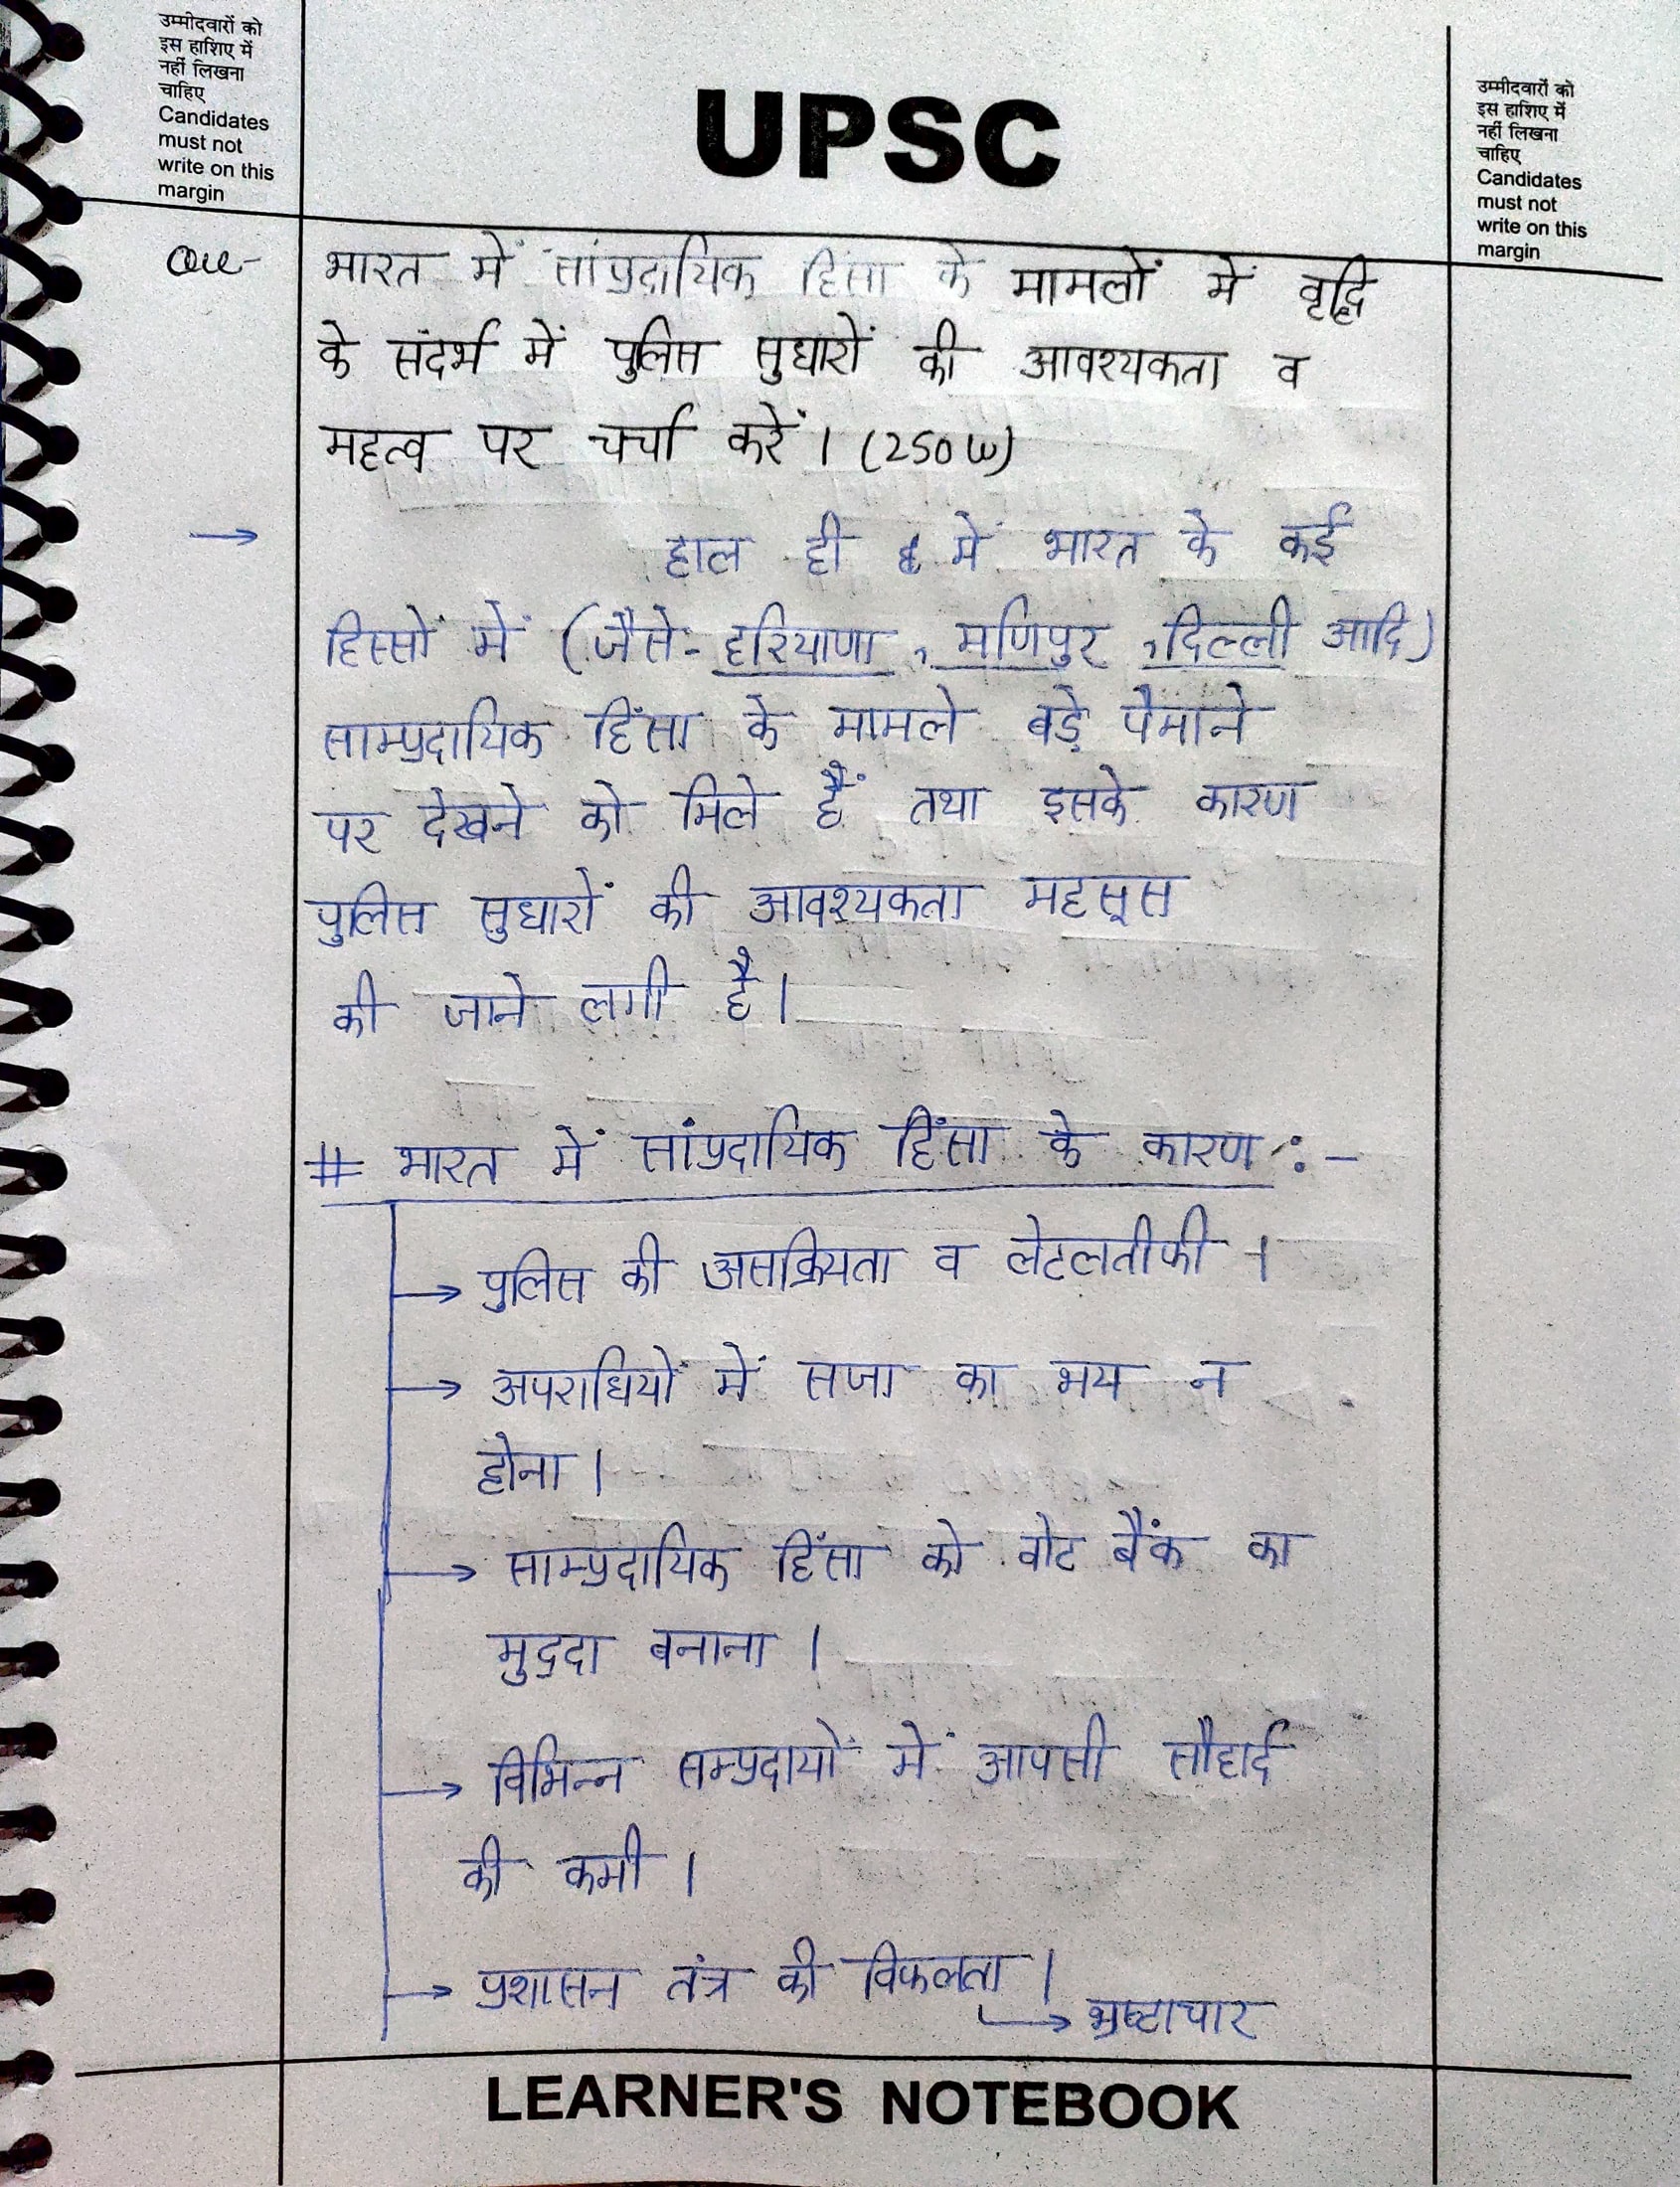 उम्मीदवारों को
इस हाशिए में
नहीं लिखना
चाहिए
Candidates
must not
write on this
margin
UPSC
उम्मीदवारों को
इस हाशिए में
नहीं लिखना
चाहिए
Candidates
must not
write on this
margin
Que- भारत में सांप्रदायिक हिंसा के मामलों में वृद्धि
के संदर्भ में पुलिस सुधारों की आवश्यकता व
महत्व पर चर्चा करें। (250 W)
→ हाल ही में भारत के कई
हिस्सों में (जैसे- हरियाणा, मणिपुर, दिल्ली आदि)
साम्प्रदायिक हिंसा के मामले बड़े पैमाने
पर देखने को मिले हैं तथा इसके कारण
पुलिस सुधारों की आवश्यकता महसूस
की जाने लगी है।
# भारत में सांप्रदायिक हिंसा के कारण :-
→ पुलिस की असक्रियता व लेटलतीफी ।
→ अपराधियों में सजा का भय न
होना ।
→ साम्प्रदायिक हिंसा को वोट बैंक का
मुद्दा बनाना ।
→ विभिन्न सम्प्रदायों में आपसी सौहार्द
की कमी ।
→ प्रशासन तंत्र की विफलता ।
→ भ्रष्टाचार
LEARNER'S NOTEBOOK